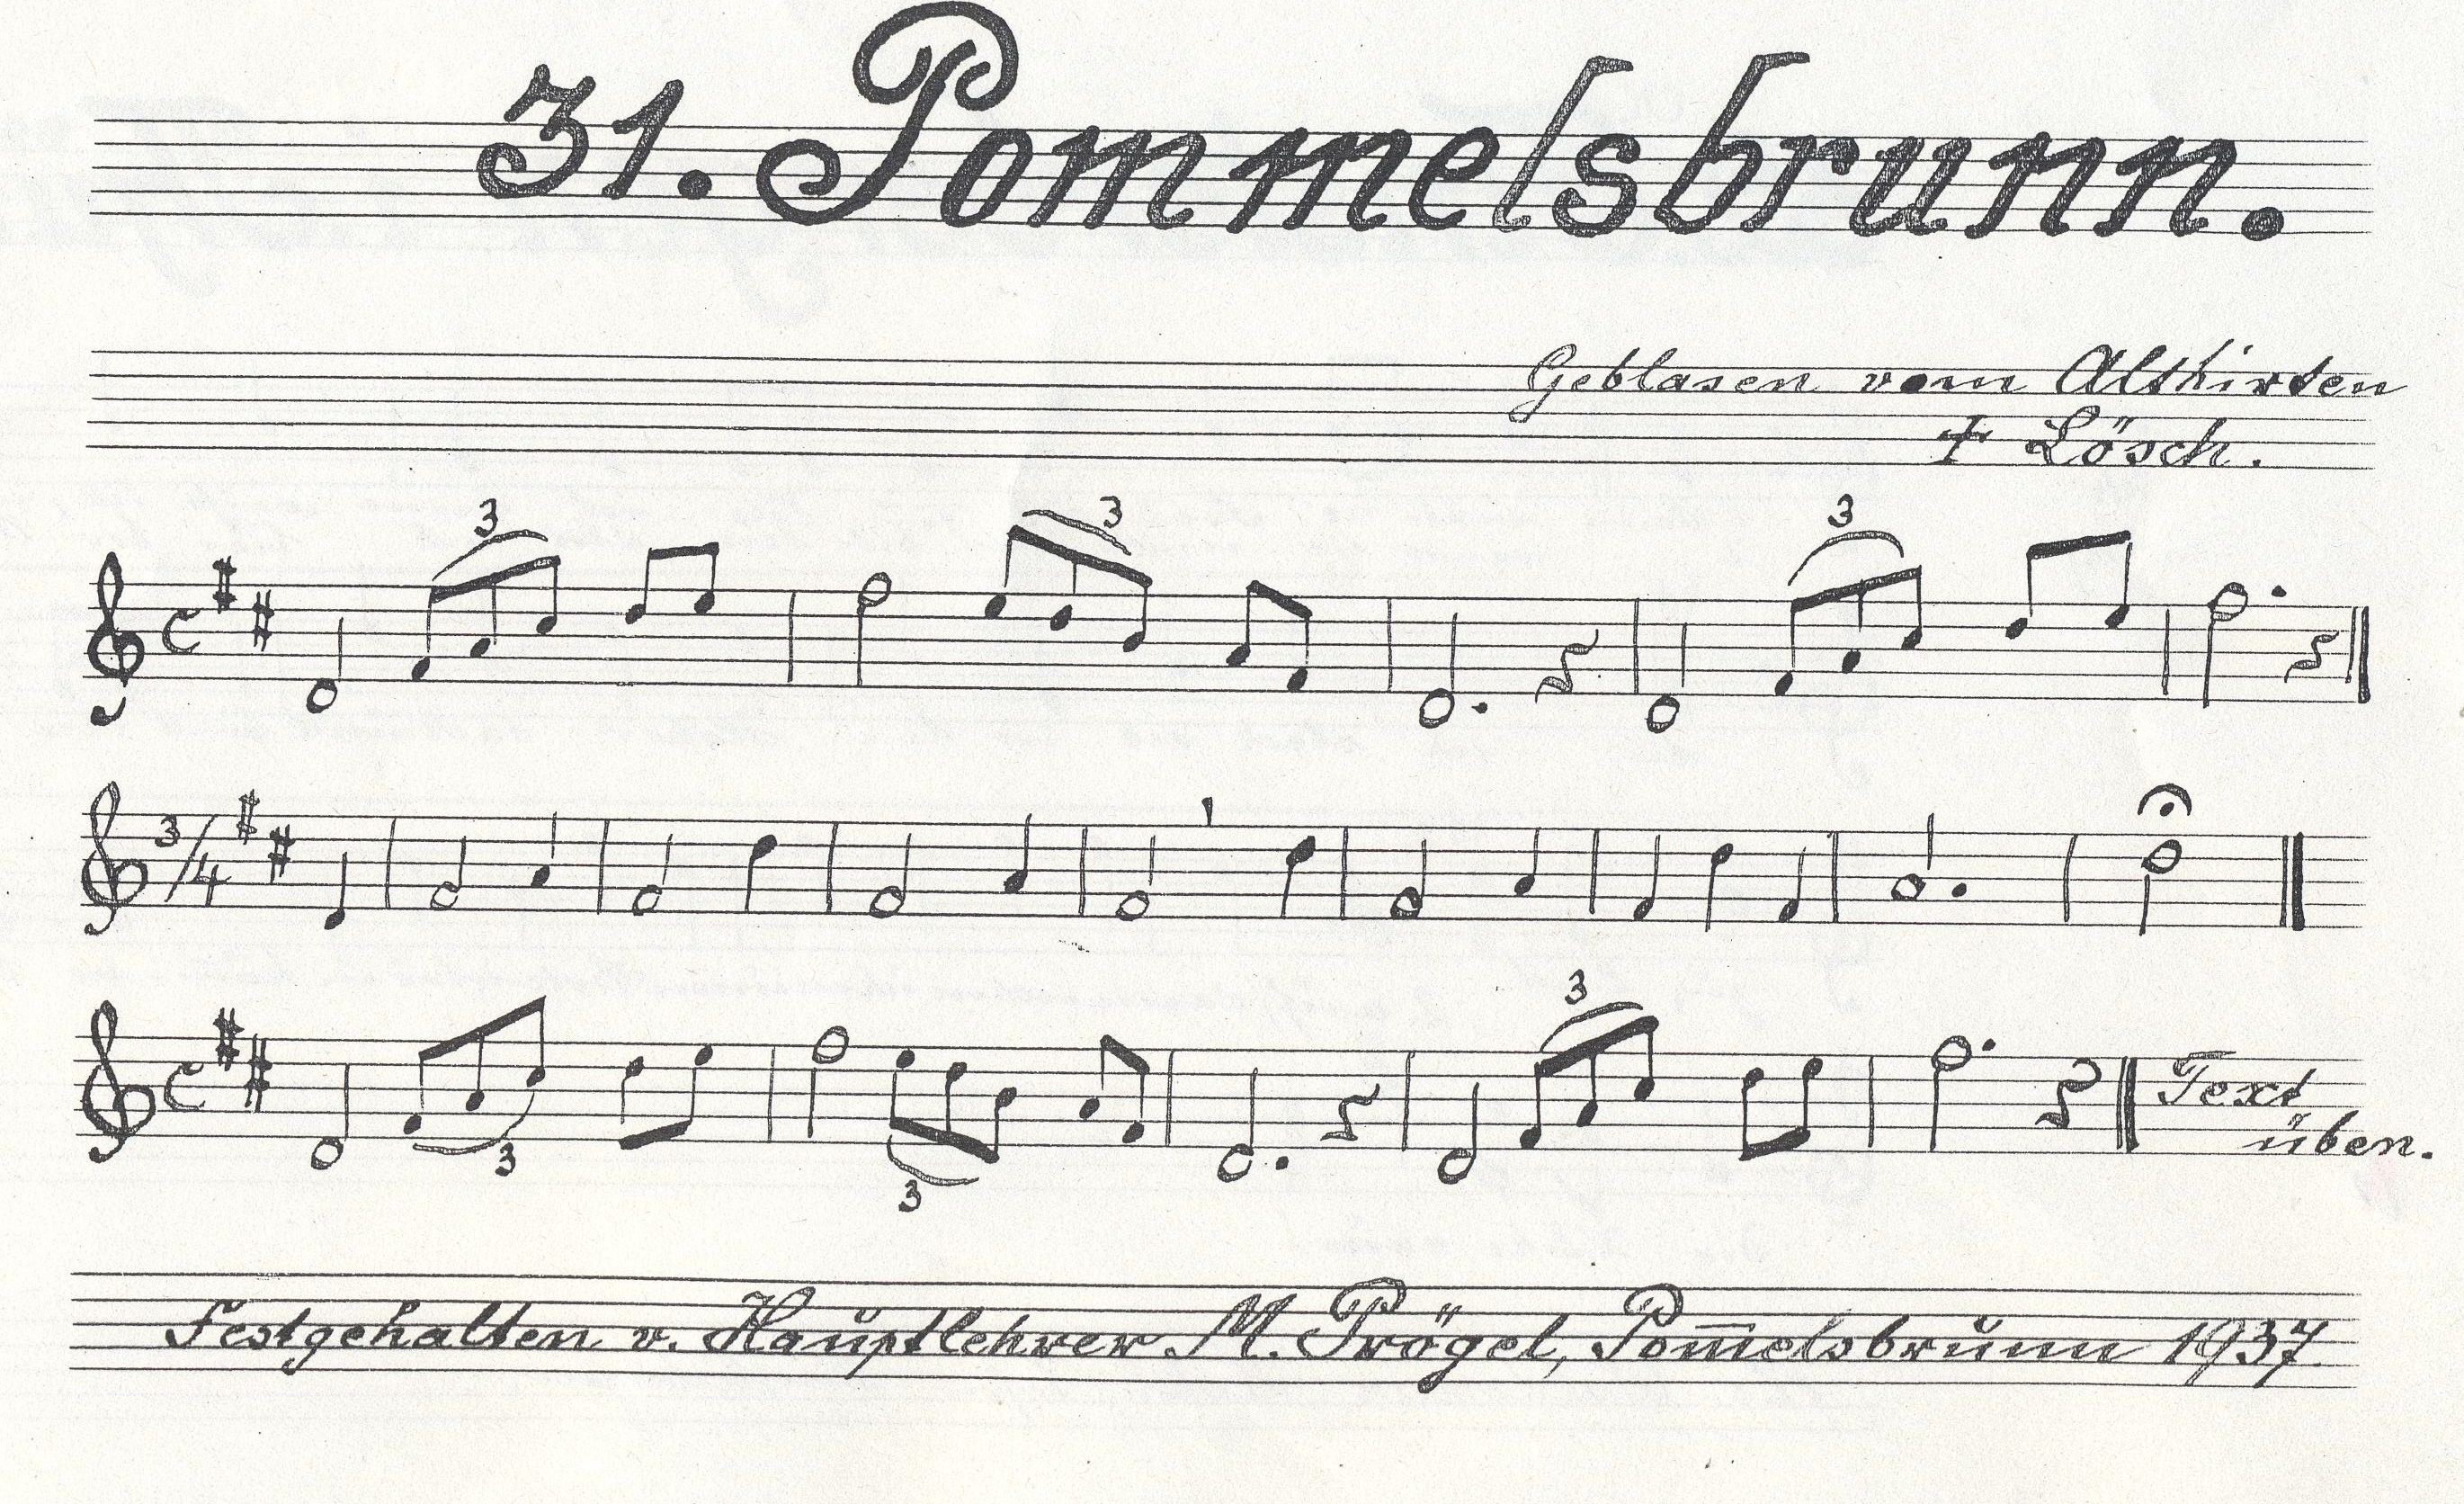 31. Pommelsbrunn.
Geblasen vom Althirten
† Lösch.
3 3 3
3/4
3
Text
üben.
3
3
Festgehalten v. Hauptlehrer M. Prögel, Pom̅elsbrunn 1937.